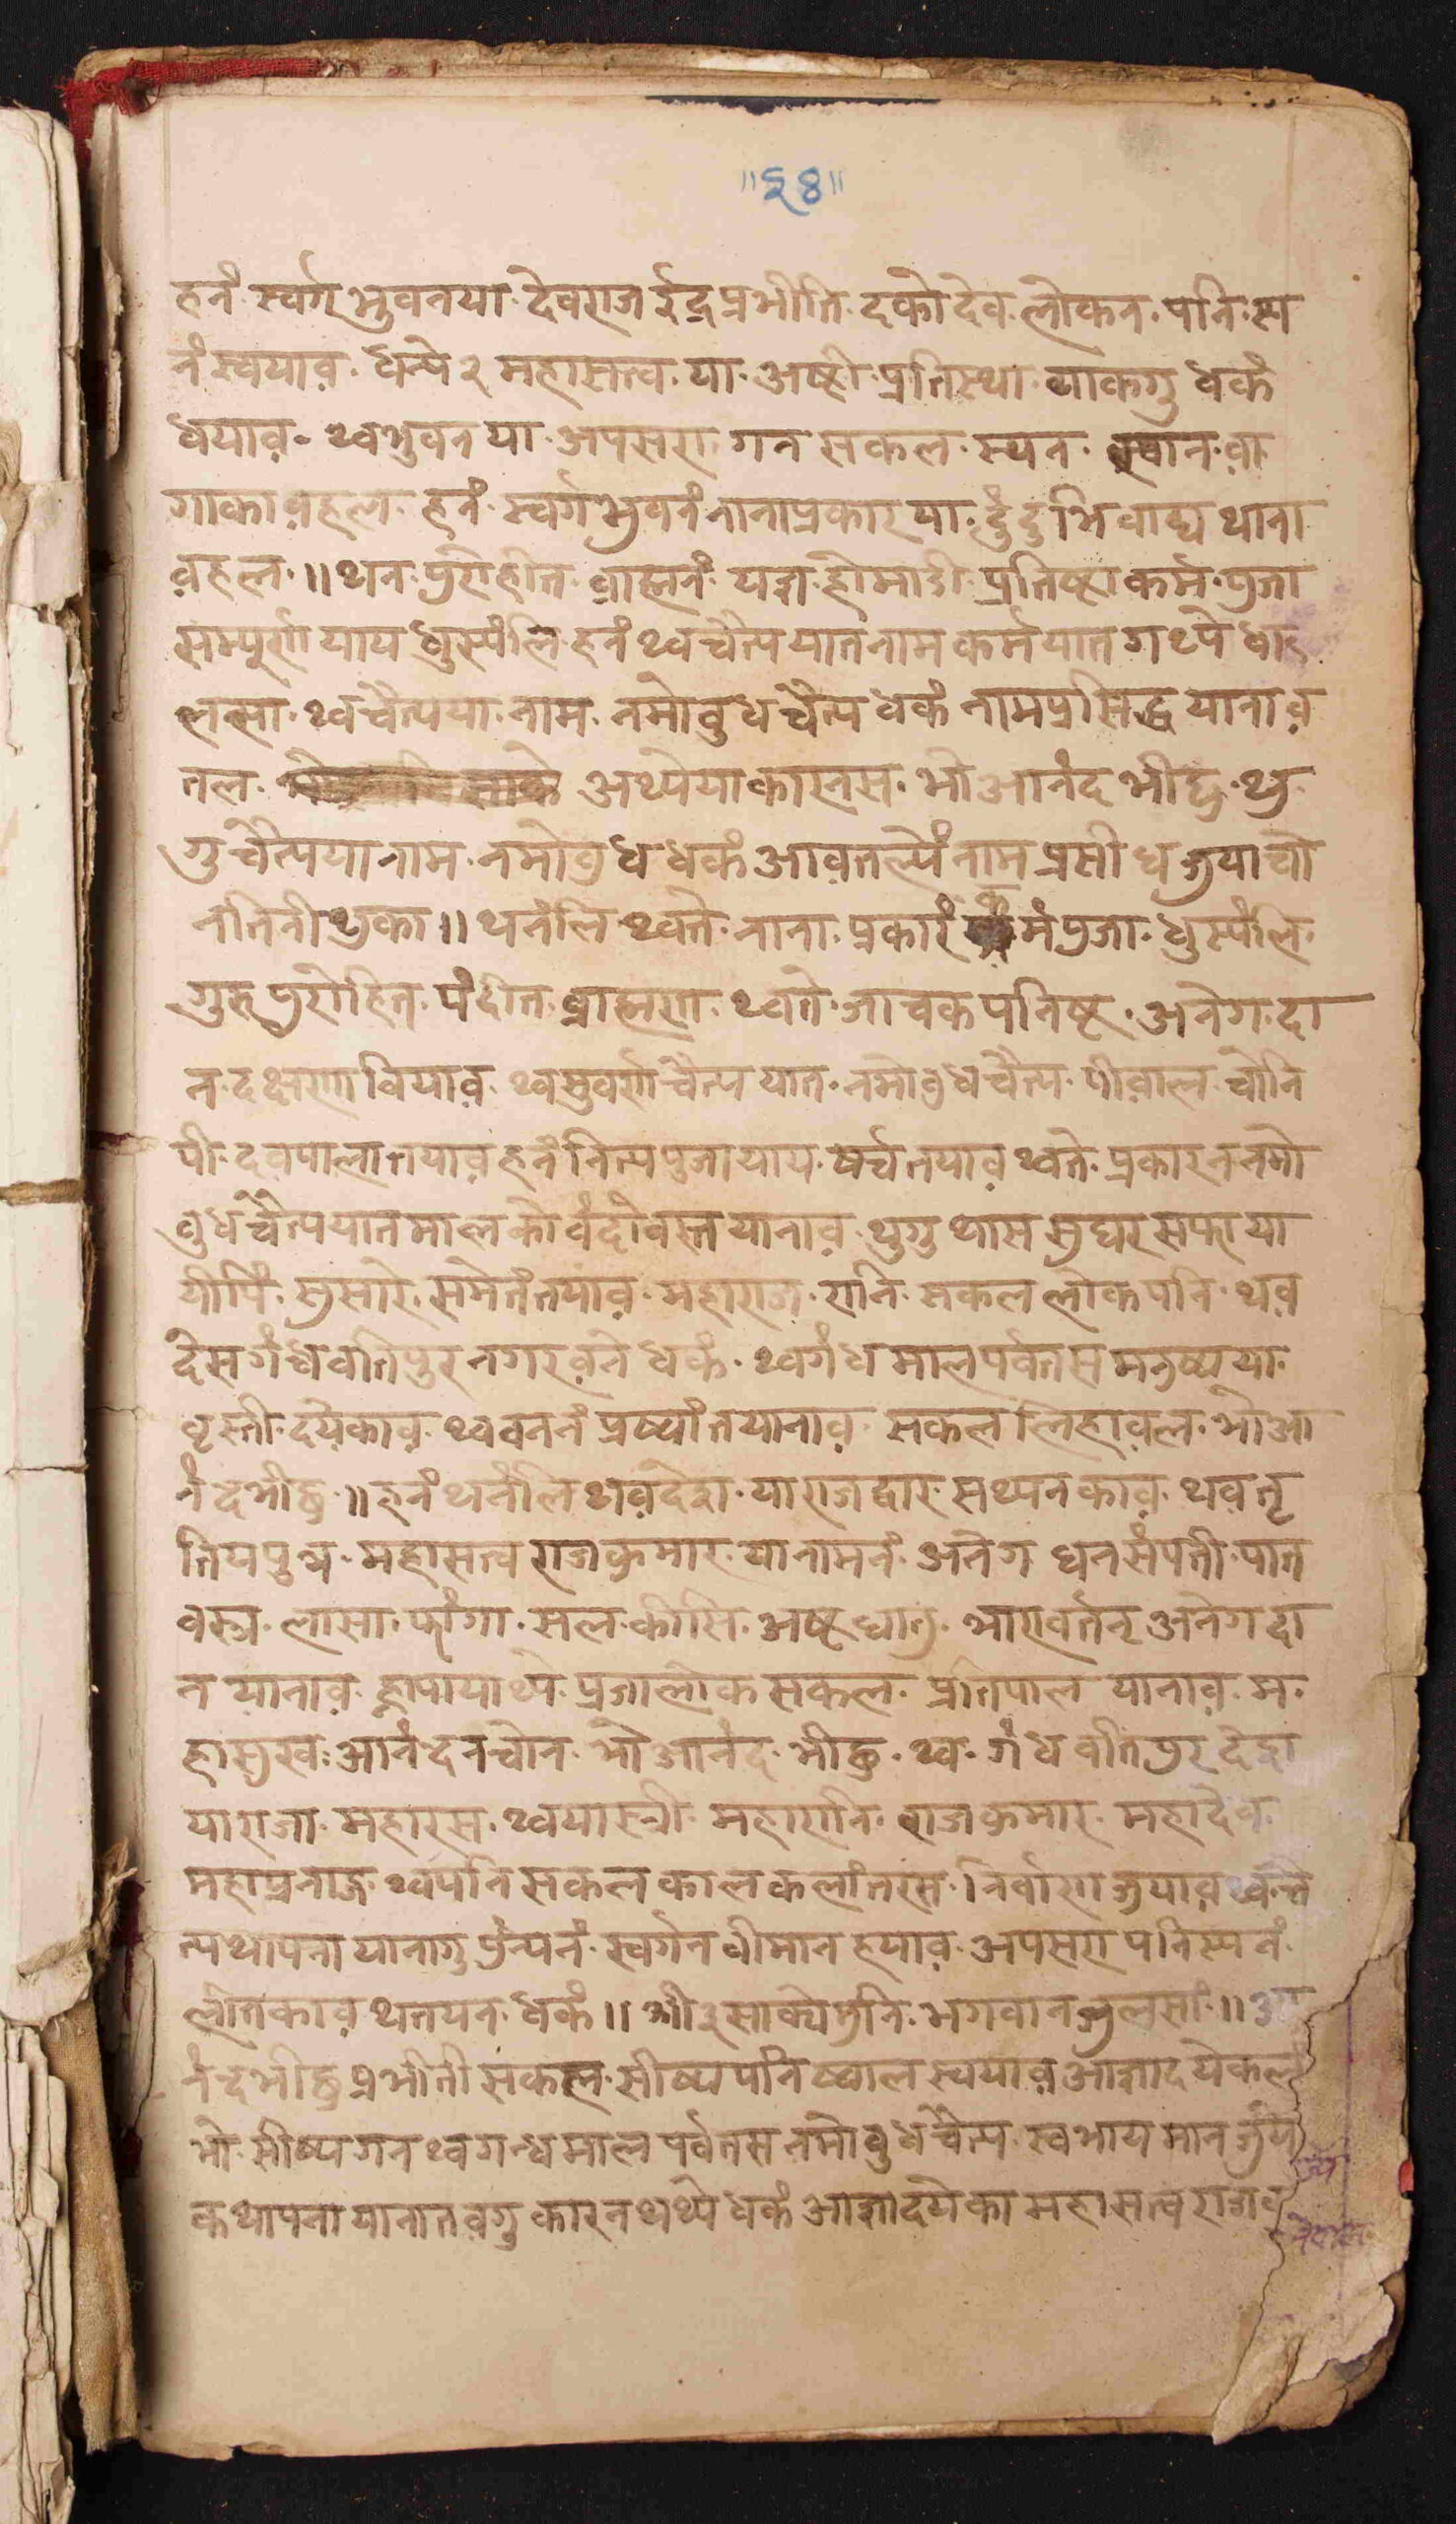 ॥६४॥
हनं स्वर्ग भुवनया देवराज ईद्र प्रभीति दको देव लोकन पनि स्य
नं स्वयाव़ धन्ये २ महासत्व या अष्टी प्रतिस्था याकगु धकं
धयाव़ थ्वभुवन या अपसरा गन सकल स्यन स्वान व़ा
गाका व़हल हनं स्वर्गभुवनं नानाप्रकार या दुंदुभि वाद्य थाना
व़हल ॥ थन पुरोहीत व्राह्मनं यज्ञ होमादी प्रतिष्ठा कर्म पुजा
सम्पुर्ण याय धुस्यंलि हनं थ्व चैत्य यात नाम कर्म यात गथ्ये धा
लसा थ्व चैत्यया नाम नमोवुध चैत्य धकं नामप्रसिद्ध यानाव़
तल अथ्येया कारनस भोआनंद भीक्षु थु
गु चैत्यया नाम नमोवुध धकं आव़तल्यें नाम प्रसीध जुया चो
नतिनी थुका ॥ थनंलि थ्वते नाना प्रकारं कर्मपुजा धुस्यंलि
गुरु पुरोहित पंदीत व्राह्मण थ्वते जाचक पनिष्ट अनेग दा
न दक्षणा वियाव़ थ्व सुवर्ण चैत्य यात नमोवुध चैत्य पीव़ाल चोनि
पी दव़पाला तयाव़ हनं नित्य पुजा यायं षर्च तयाव़ थ्वते प्रकारन नमो
वुध चैत्ययात मालको वंदोवस्त यानाव़ थुगु थास सुघर सफा या
यीपिं सुसारे समेतं तयाव़ महाराज रानि सकल लोकपनि थव़
देस गंधेवतिपुर नगर व़ने धकं थ्वगंध मालपर्वतस मनुष्य या
वृस्ती दयेकाव़ थ्ववननं प्रष्थांतयानाव़ सकल लिहाव़ल भो आ
नंदभीक्षु ॥ हनं थनंलि थव़देश या राजद्वार सथ्यनकाव़ थव़ तृ
तिय पुत्र महासत्व राजकुमार यानामनं अनेग धन संपती पात
वस्त्र लासा फांगा सल कीसि अष्ट धातु भारावर्तन अनेग दा
न यानाव़ ह्लापायाथ्ये प्रजालोक सकल प्रतिपाल यानाव़ म
हासुख आनंदन चोन भो आनंद भीक्षु थ्व गंधवतिपुर देश
या राजा महारस थ्वया स्त्री महारानि राजकुमार महादेव
महाप्रनाज थ्वपनि सकल काल कलांतरस निर्वाण जुयाव़ थ्व चै
त्य थापना यानागु पुन्यनं स्वर्गन वीमान हयाव़ अपसरा पनिस्यनं
लीतकाव़ थतयन धकं ॥ श्री३साक्येमुनि भगवान जुलसां ॥ आ
नंदभीक्षु प्रभीती सकल सीष्य पनि ष्वाल स्वयाव़ आज्ञादयेकल
भो सीष्य गन थ्व गन्धमाल पर्वतस नमोवुध चैत्य स्वभायमान जुय
क थापना यानातव़गु कारन थथ्ये धकं आज्ञादयेका महासत्व राज